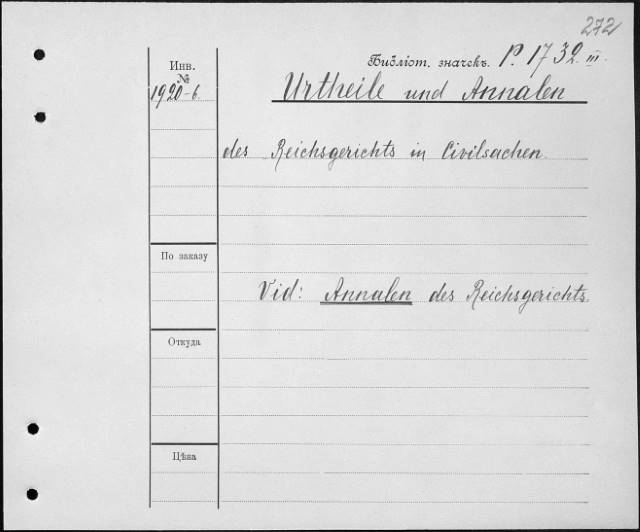 272
Библіот. значекъ. P. 1732. III.
Инв.
№
1920-6.
Urtheile und Annalen
des Reichsgerichts in Civilsachen.
По заказу
Vid: Annalen des Reichsgerichts.
Откуда
Цѣна